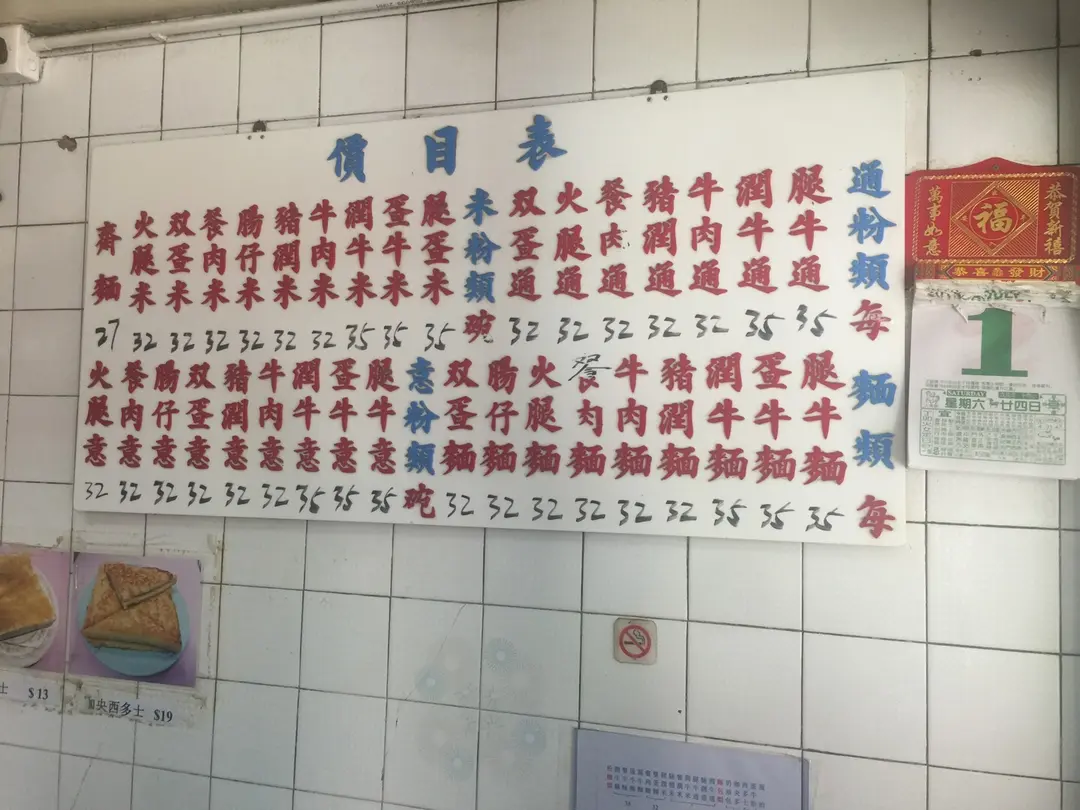 價目表
通粉類每
腿牛通 35
潤牛通 35
牛肉通 32
豬潤通 32
餐肉通 32
火腿通 32
双蛋通 32
米粉類碗
腿蛋米 35
蛋牛米 35
潤牛米 35
牛肉米 32
豬潤米 32
腸仔米 32
餐肉米 32
双蛋米 32
火腿米 32
齋麵 27
麵類每
腿牛麵 35
蛋牛麵 35
潤牛麵 35
豬潤麵 32
牛肉麵 32
餐肉麵 32
火腿麵 32
腸仔麵 32
双蛋麵 32
意粉類碗
腿牛意 35
蛋牛意 35
潤牛意 35
牛肉意 32
豬潤意 32
双蛋意 32
腸仔意 32
餐肉意 32
火腿意 32
恭賀新禧
福
萬事如意
恭喜發財
JULY
1
SATURDAY
星期六
廿四日
宜
士 $13
央西多士 $19